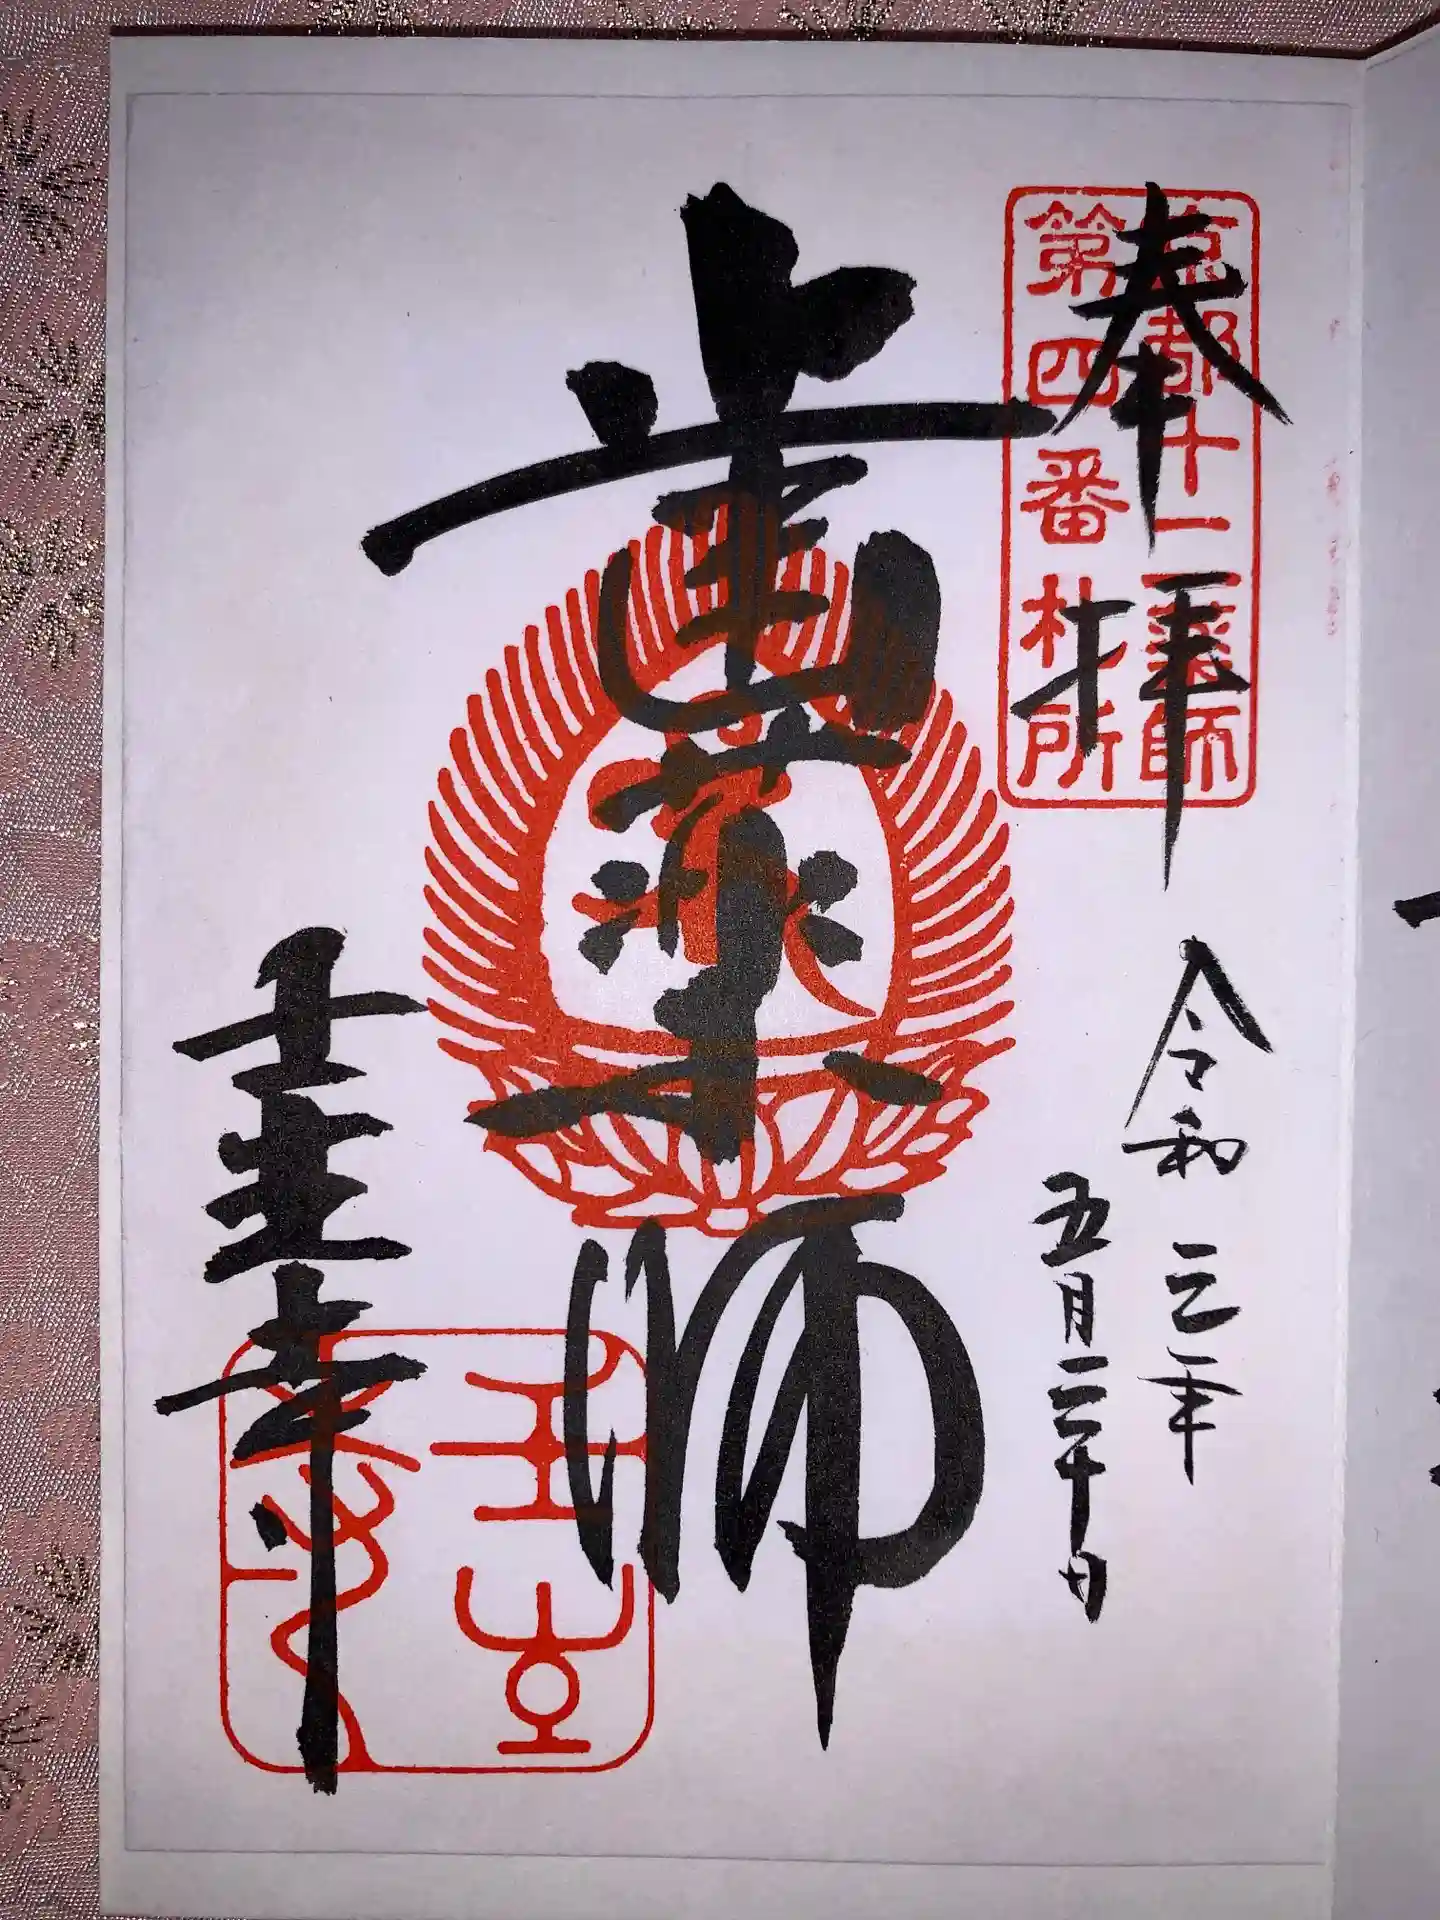 奉拝
京都十二薬師
第四番札所
令和元年
五月三十日
歯薬師
壬生寺
壬生